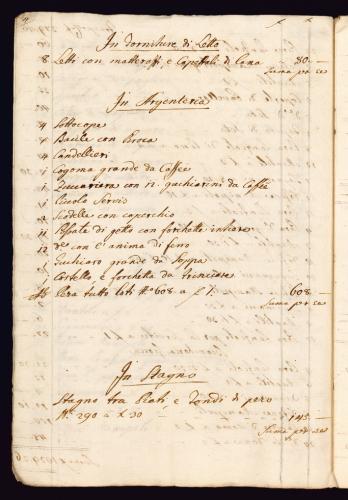 In forniture di Letto
8 Letti con matterassi, e Capezali di Lana 80
Suma per se
In Argenteria
4 Sottocope
4 Bacile con Broca
4 Candellieri
1 Cogoma grande da Caffee
1 Zuccariera con 12 cuchiarini da Caffè
1 Picolo Servio
12 Scudelle con coperchio
11 Possate di getto con forchette intiere
12 dte con l'anima di ferro
1 Cuchiaro grande da Soppa
1 Cortello, e forchetta da trinciare
Pesa tutto loti No 608 a f 1 608
Suma per se
In Stagno
Stagno tra Piati e Tondi di peso
No 290 a X 30 145
Suma per se